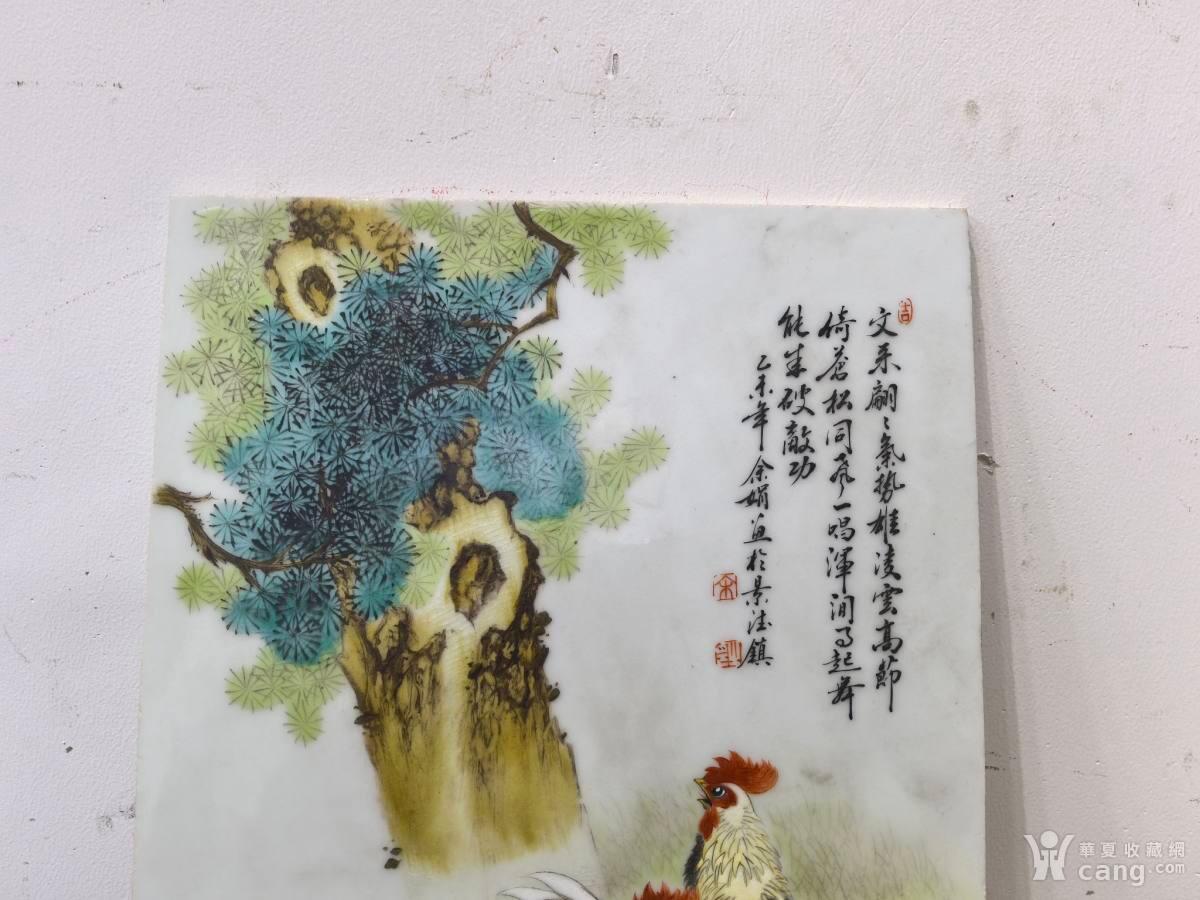 文采翩〻氣勢雄凌雲高節
倚蒼松同風一唱渾閒事起舞
能成破敵功
乙未年余娟画於景德鎮
吉
余
華夏收藏網
cang.com